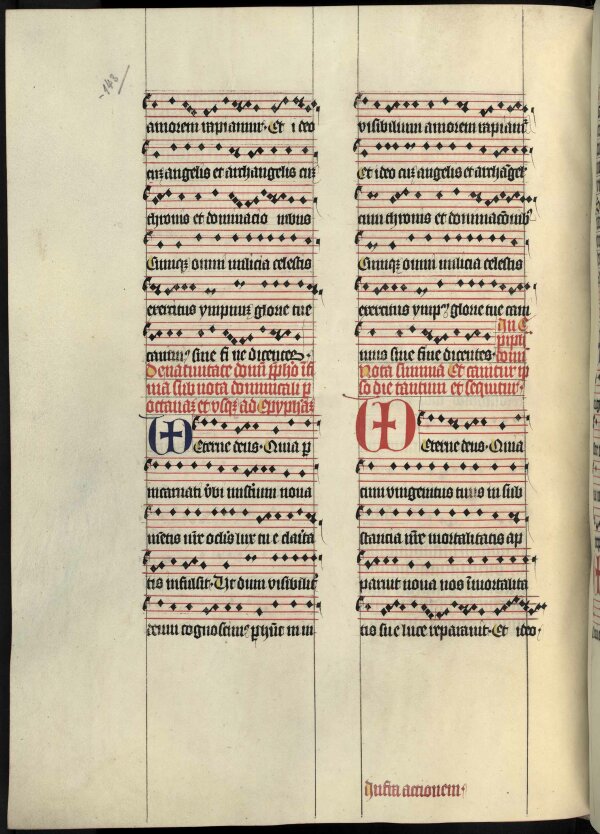 148
amorem rapiamur. Et i deo
cũ angelis et archangelis cũ
thronis et dominacio nibus
Cumq; omni milicia celestis
exercitus ympnum glorie tue
canimus sine fi ne dicentes.
De natiuitate domini
ma sub nota dominicali
octauas et usq; ad Epyphaniã
Eterne deus. Quia p
incarnati vbi misterium noua
mentis nr̃e oclis lux tu e clarita
tis infulsit. Ut dum visibilit̃
deum cognoscimꝰ p hũc in in
visibilium amorem rapiam̃
Et ideo cũ angelis et archãgel
cum thronis et dominacõib
Cumq; omni milicia celestis
exercitus ympꝰ glorie tue cani
In E
mus sine fine dicentes.
piphi
domi
Nota summa Et canitur ip
so die tantum et sequitur.
Eterne deus. Quia
cum vnigenitus tuus in sub
stancia nr̃e mortalitatis ap
paruit noua nos ĩmortalita
tis sue luce reparauit. Et ideo.
Infra actionem.